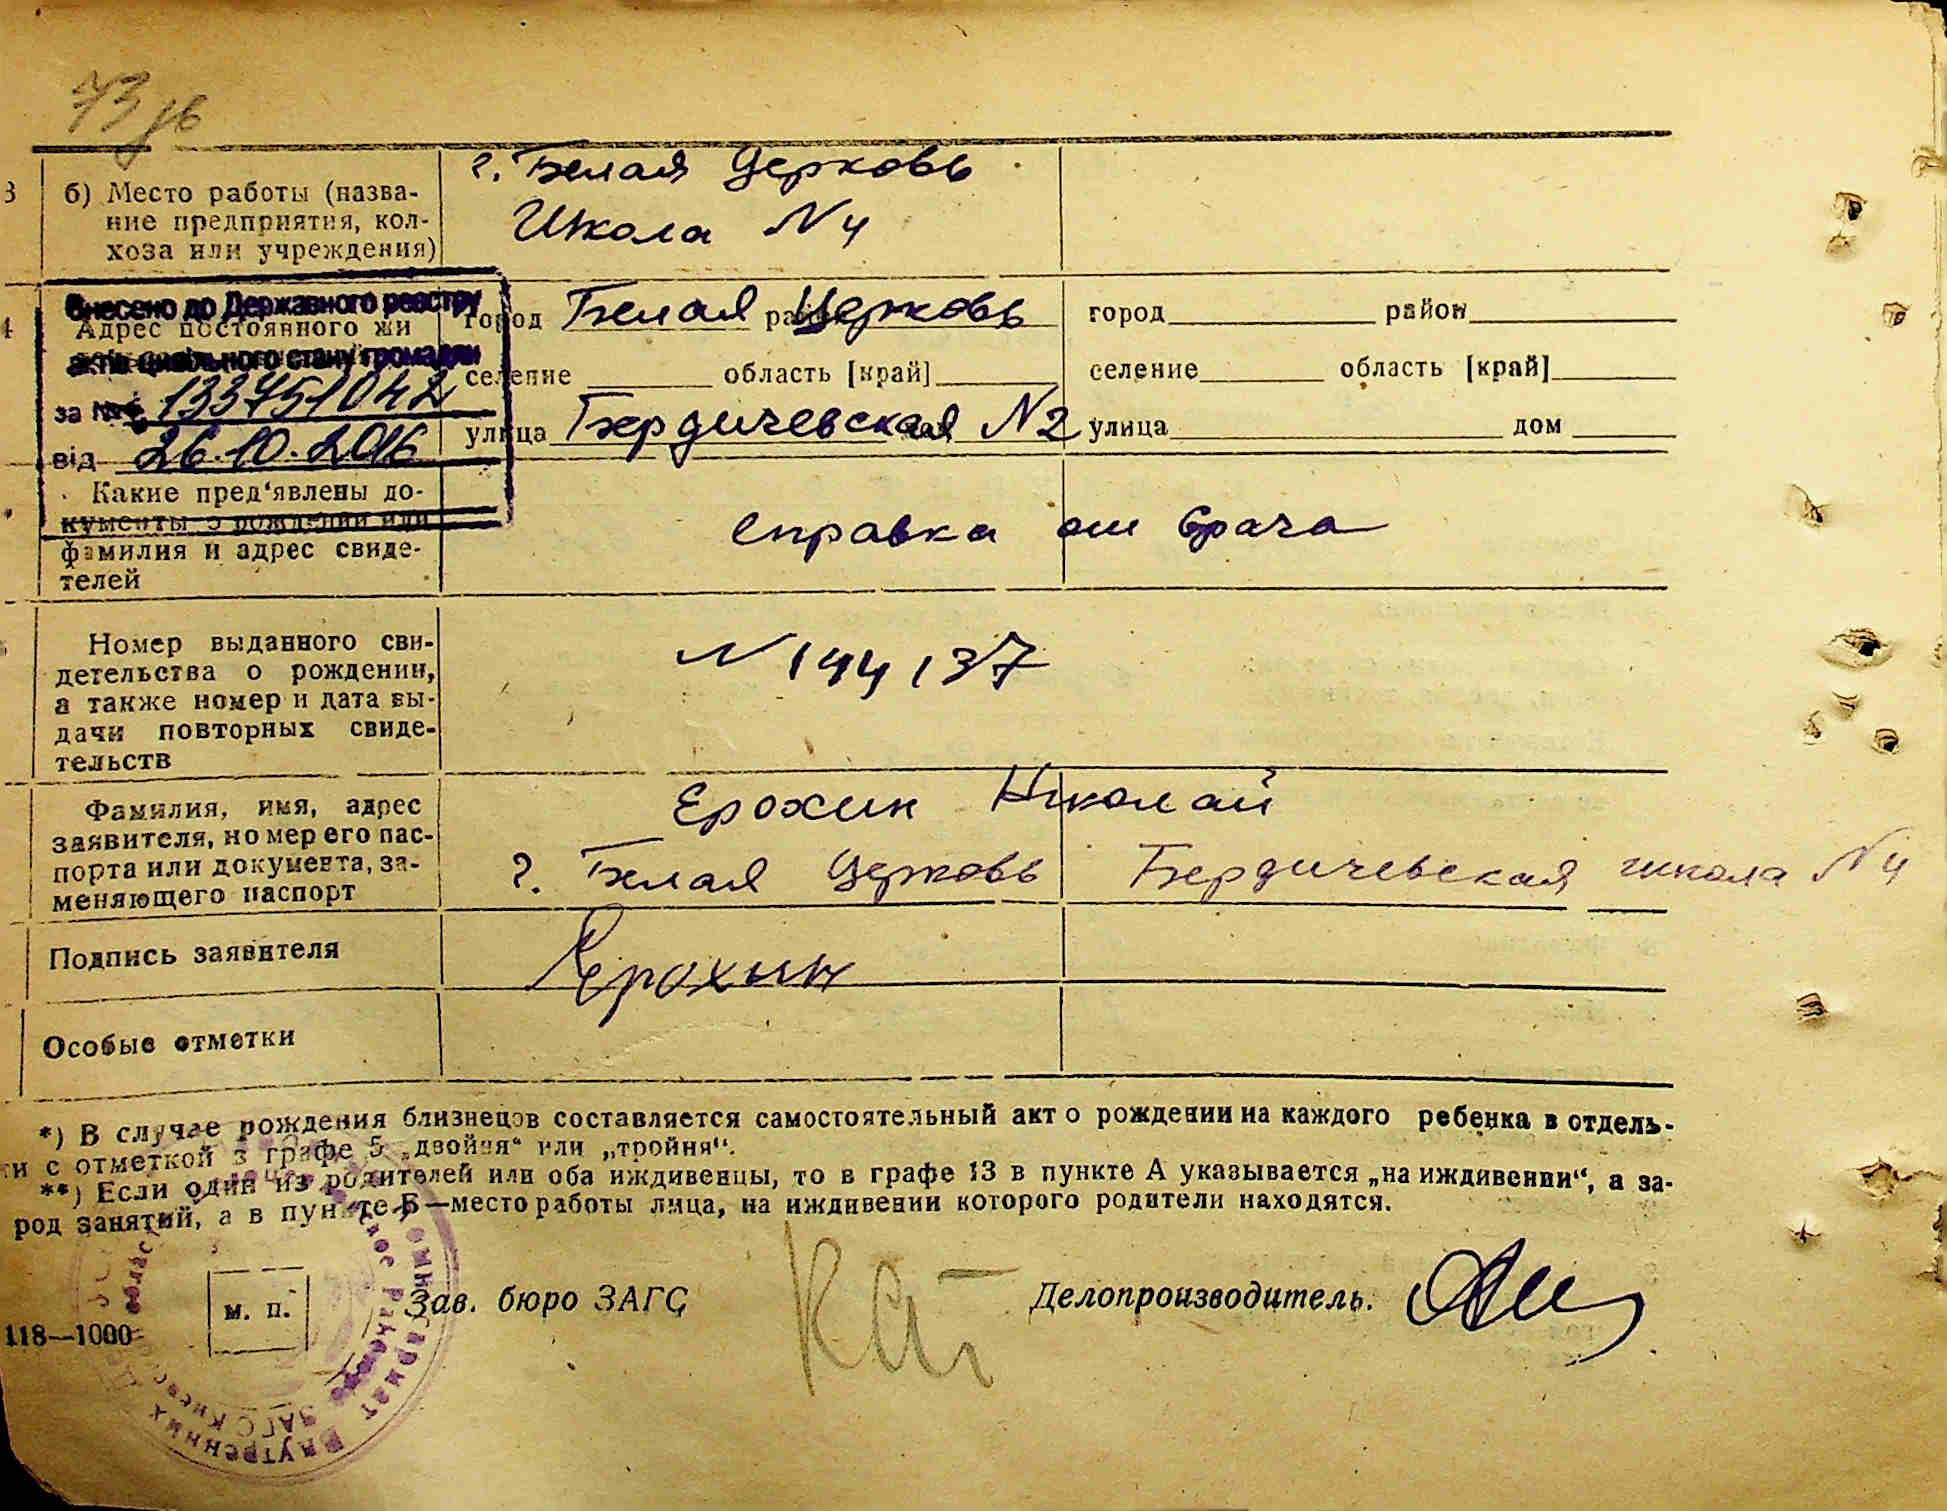 73
б) Место работы (назва-
ние предприятия, кол-
хоза или учреждения)
г. Белая Церковь
Школа N 4
Внесено до Державного реєстру
актів цивільного стану громадян
за № 133751042
від 26.10.2016
Адрес постоянного жи
город Белая Церковь район
селение область [край]
улица Бердичевская N 2
город район
селение область [край]
улица дом
Какие пред'явлены до-
кументы о рождении или
фамилия и адрес свиде-
телей
справка от врача
Номер выданного сви-
детельства о рождении,
а также номер и дата вы-
дачи повторных свиде-
тельств
N 144137
Фамилия, имя, адрес
заявителя, номер его пас-
порта или документа, за-
меняющего паспорт
Ерохин Николай
г. Белая Церковь Бердичевская школа N 4
Подпись заявителя
Ерохин
Особые отметки
*) В случае рождения близнецов составляется самостоятельный акт о рождении на каждого ребенка в отдель-
и с отметкой в графе 5 „двойня“ или „тройня“.
**) Если один из родителей или оба иждивенцы, то в графе 13 в пункте А указывается „на иждивении“, а за-
род занятий, а в пункте Б—место работы лица, на иждивении которого родители находятся.
м. п.
Зав. бюро ЗАГС
Делопроизводитель.
118—1000
внутренних
ЗАГС Киевс